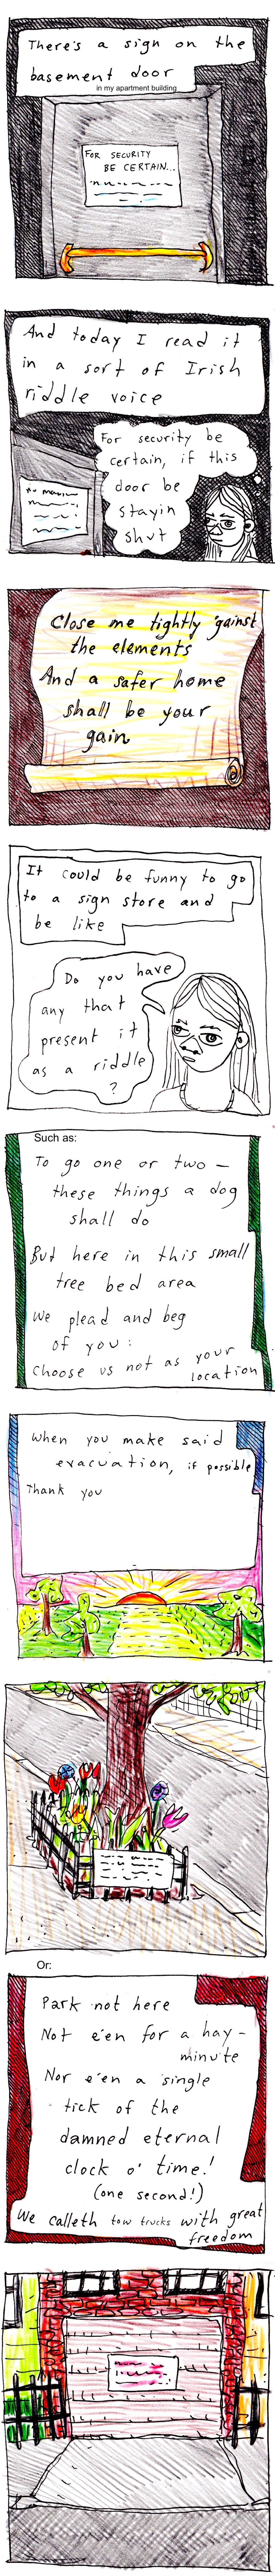 There's a sign on the
basement door
in my apartment building
FOR SECURITY
BE CERTAIN...
And today I read it
in a sort of Irish
riddle voice
For security be
certain, if this
door be
stayin
shut
Close me tightly 'gainst
the elements
And a safer home
shall be your
gain
It could be funny to go
to a sign store and
be like
Do you have
any that
present it
as a riddle
?
Such as:
To go one or two –
these things a dog
shall do
But here in this small
tree bed area
We plead and beg
of you:
Choose us not as your
location
When you make said
evacuation, if possible
Thank you
Or:
Park not here
Not e'en for a hay-
minute
Nor e'en a single
tick of the
damned eternal
clock o' time!
(one second!)
We calleth tow trucks with great
freedom